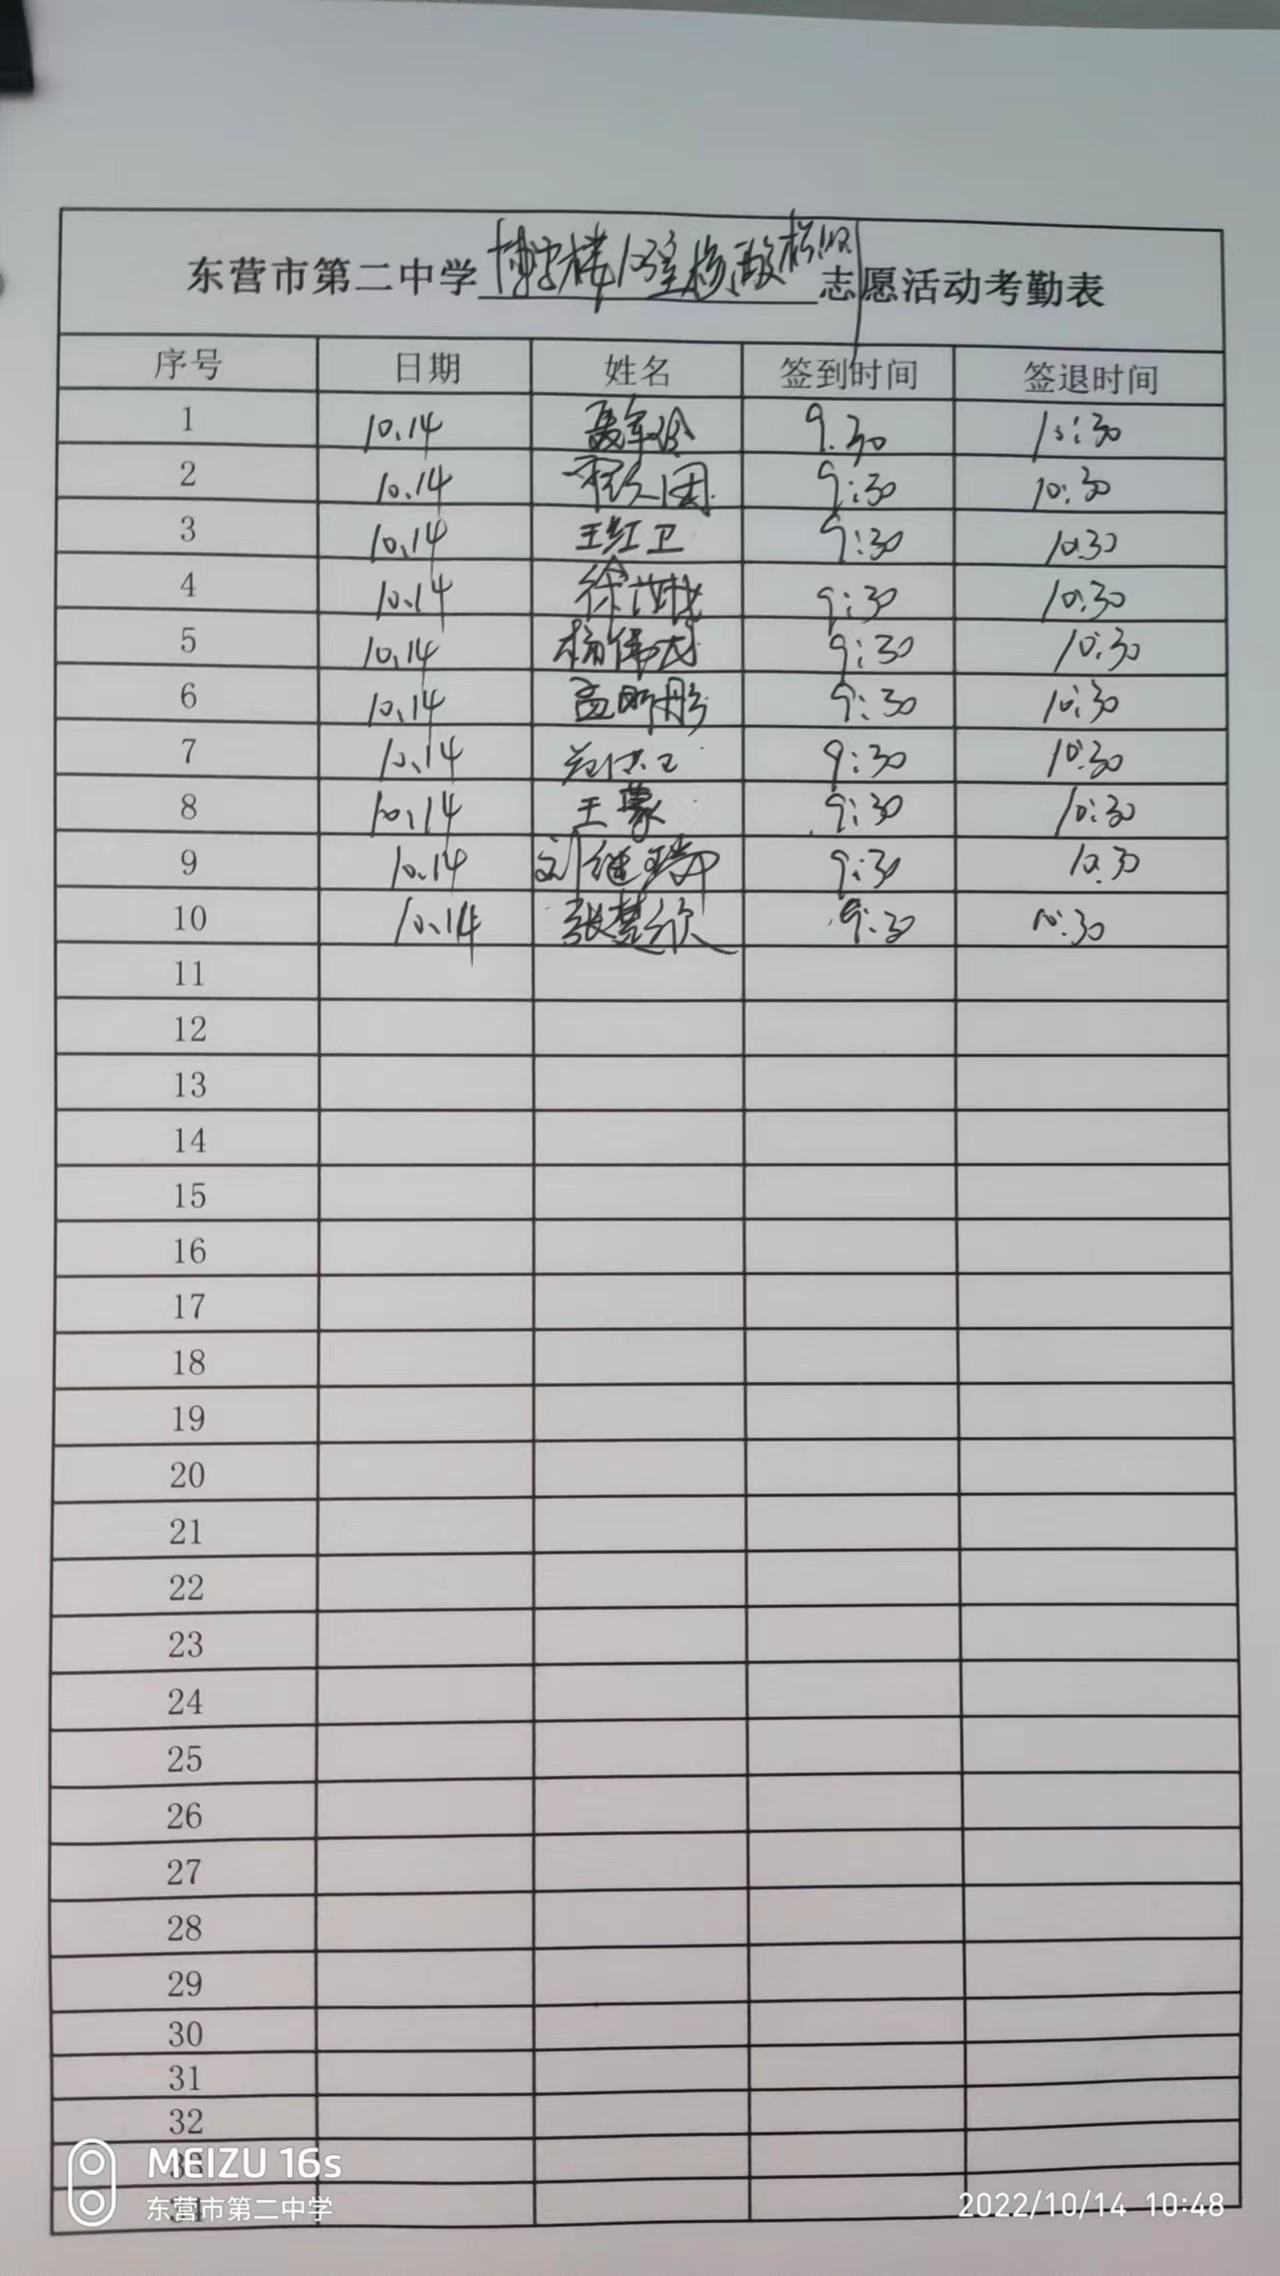 东营市第二中学博学楼 核酸检测志愿活动考勤表
序号 日期 姓名 签到时间 签退时间
1 10.14 9.30 10:30
2 10.14 9:30 10:30
3 10.14 王红卫 9:30 10.30
4 10.14 徐 9:30 10.30
5 10.14 杨伟 9:30 10:30
6 10.14 孟昕彤 9:30 10:30
7 10.14 9:30 10:30
8 10.14 王蒙 9:30 10:30
9 10.14 刘继瑞 9:30 10.30
10 10.14 张楚欣 9:30 10:30
11
12
13
14
15
16
17
18
19
20
21
22
23
24
25
26
27
28
29
30
31
32
33
34
MEIZU 16s
东营市第二中学
2022/10/14 10:48